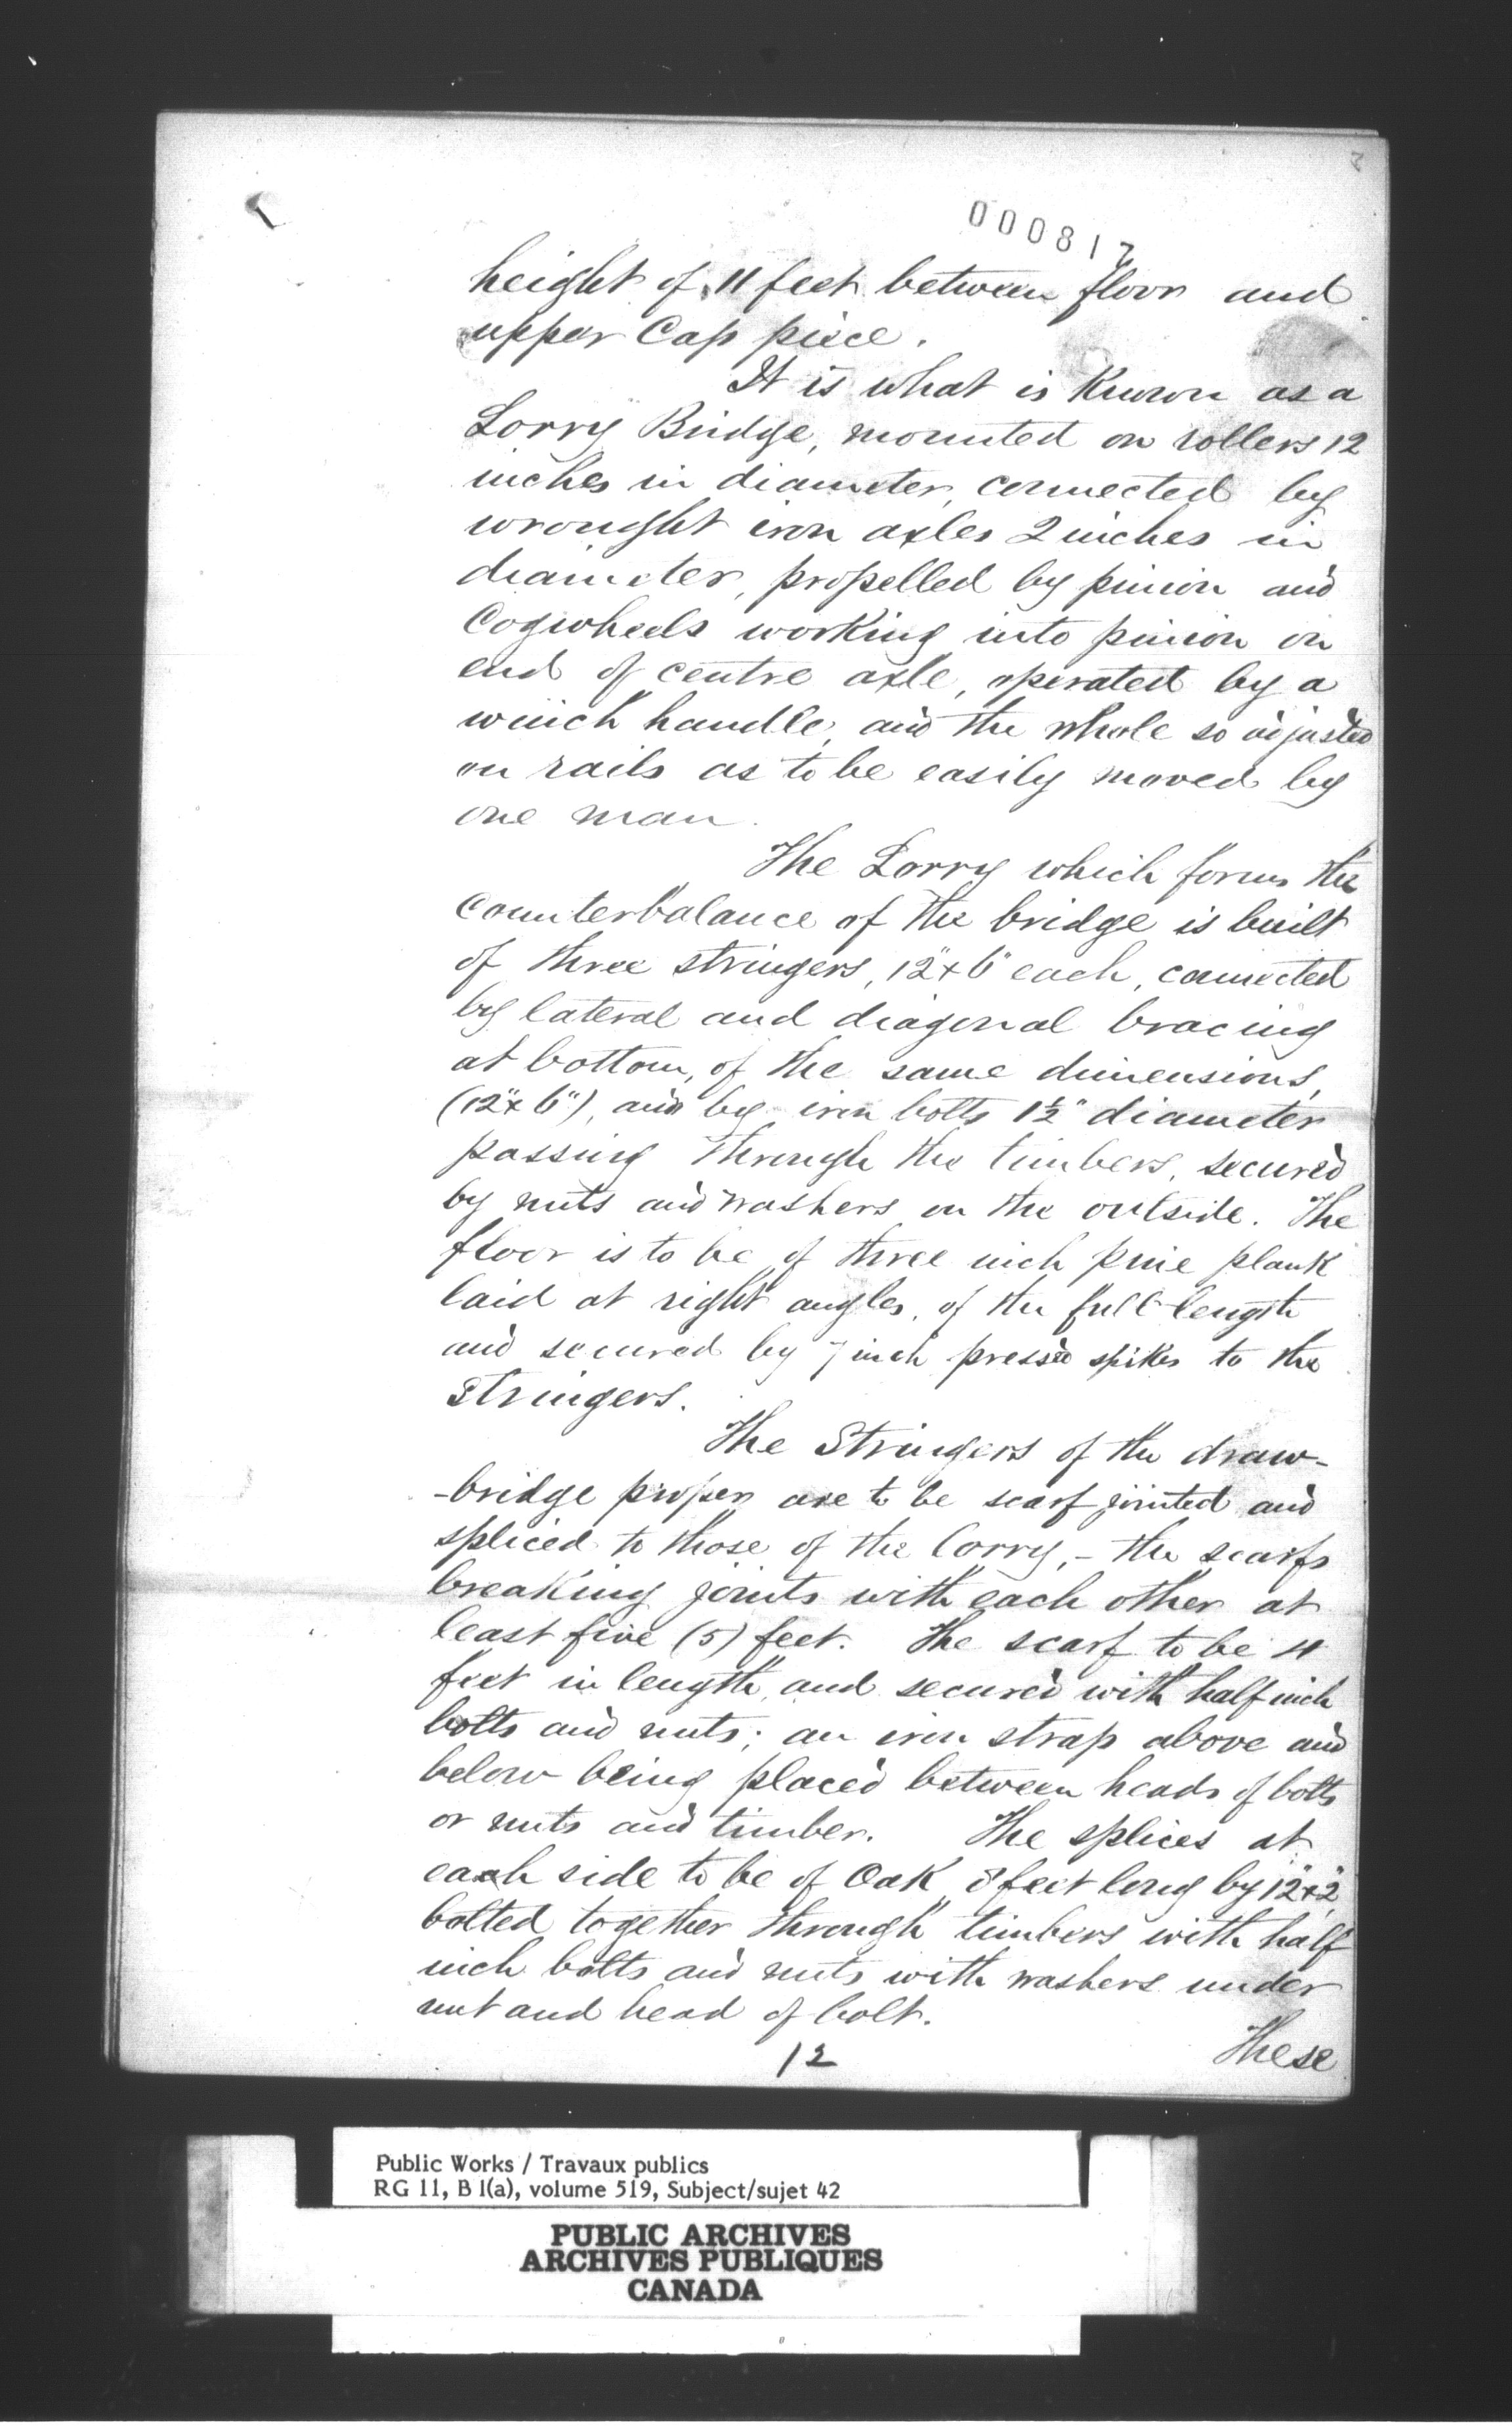 000817
height of 11 feet between floor and
upper Cap piece.
It is what is Known as a
Lorry Bridge, mounted on rollers 12
inches in diameter, connected by
wrought iron axles 2 inches in
diameter, propelled by pinion and
Cogwheels working into pinion on
end of centre axle, operated by a
winch handle, and the whole so adjusted
on rails as to be easily moved by
one man.
The Lorry which forms the
Counterbalance of the bridge is built
of three stringers, 12"x6" each, connected
by lateral and diagonal bracing
at bottom, of the same dimensions,
(12"x6"), and by iron bolts 1½" diameter
passing through the timbers, secured
by nuts and washers on the outside. The
floor is to be of three inch pine plank
laid at right angles, of the full length
and secured by 7 inch pressed spikes to the
Stringers.
The Stringers of the draw-
-bridge proper are to be scarf jointed and
spliced to those of the Lorry, - the scarfs
breaking joints with each other at
least five (5) feet. The scarf to be 4
feet in length, and secured with half inch
bolts and nuts; an iron strap above and
below being placed between heads of bolts
or nuts and timber. The splices at
each side to be of Oak 8 feet long by 12"x2",
bolted together through timbers with half
inch bolts and nuts with washers under
nut and head of bolt.
12
These
Public Works / Travaux publics
RG 11, B 1(a), volume 519, Subject/sujet 42
PUBLIC ARCHIVES
ARCHIVES PUBLIQUES
CANADA